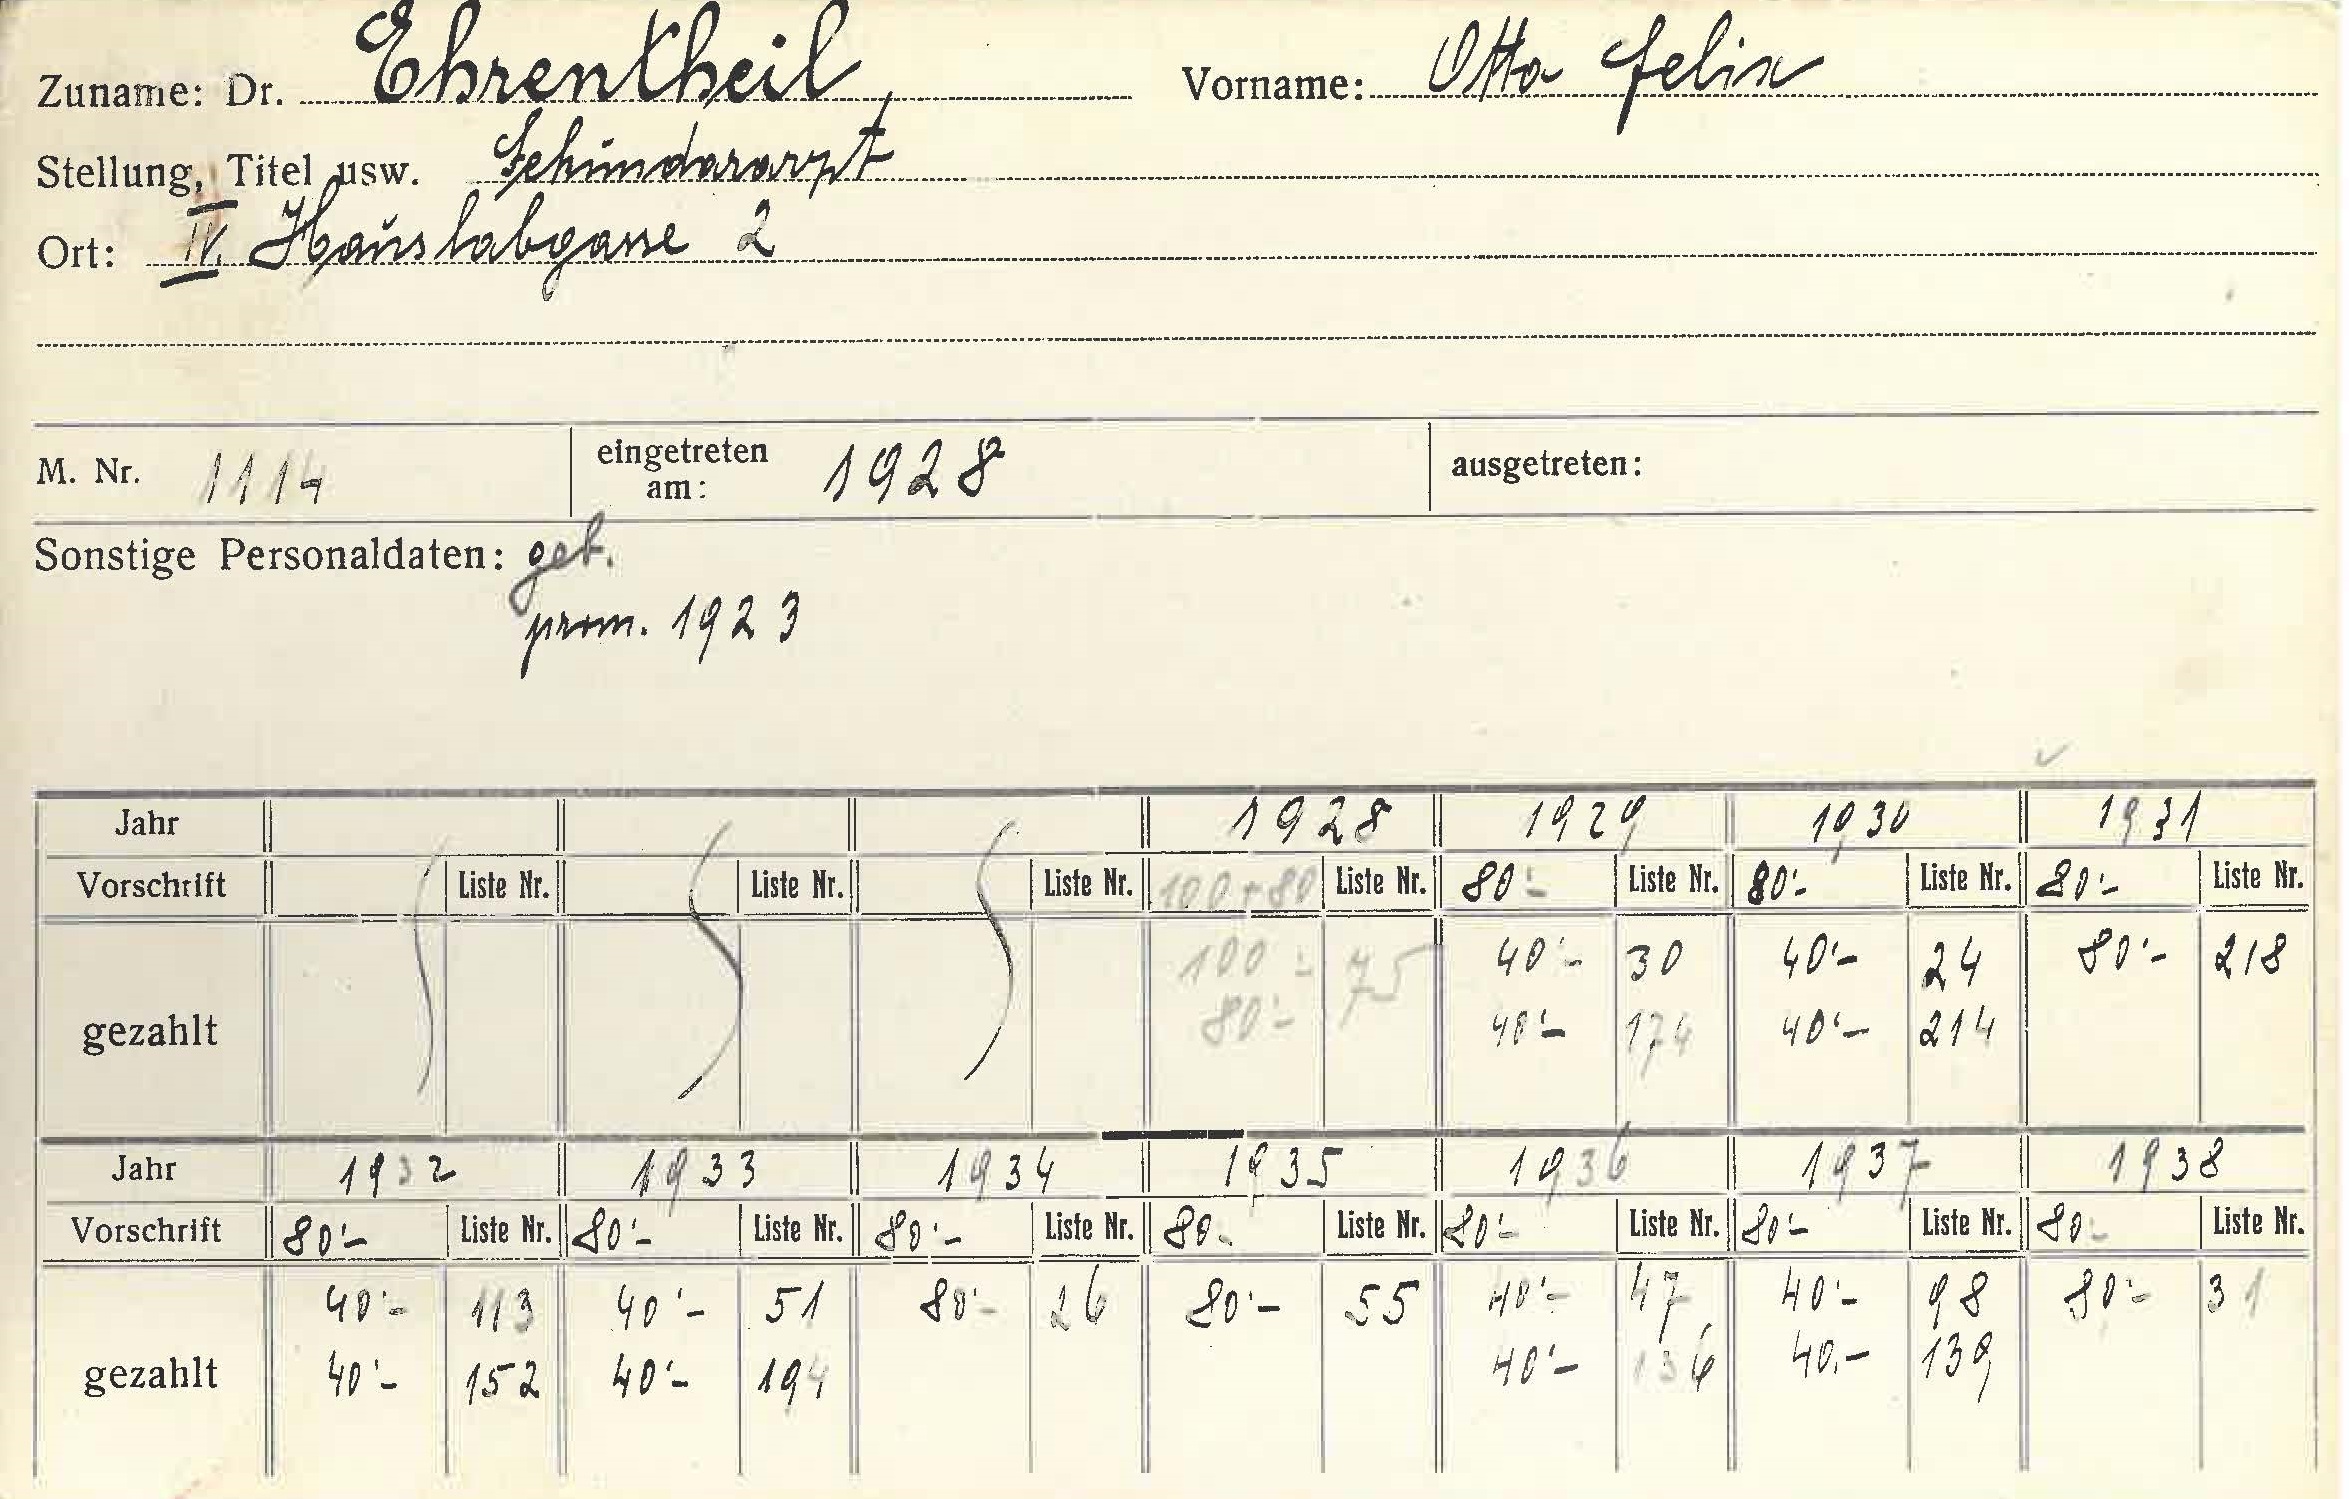 Zuname: Dr. Ehrentheil Vorname: Otto Felix
Stellung, Titel usw. Sekundararzt
Ort: IV. Hauslabgasse 2
M. Nr. 1114 eingetreten am: 1928 ausgetreten:
Sonstige Personaldaten: geb.
prom. 1923
Jahr 1928 1929 1930 1931
Vorschrift Liste Nr. Liste Nr. Liste Nr. 100+80 Liste Nr. 80'- Liste Nr. 80'- Liste Nr. 80'- Liste Nr.
gezahlt 100'- 75 40'- 30 40'- 24 80'- 218
80'- 40'- 174 40'- 214
Jahr 1932 1933 1934 1935 1936 1937 1938
Vorschrift 80'- Liste Nr. 80'- Liste Nr. 80'- Liste Nr. 80.- Liste Nr. 80'- Liste Nr. 80'- Liste Nr. 80.- Liste Nr.
gezahlt 40'- 113 40'- 51 80'- 26 80'- 55 40'- 47 40'- 98 80'- 31
40'- 152 40'- 194 40'- 136 40.- 139